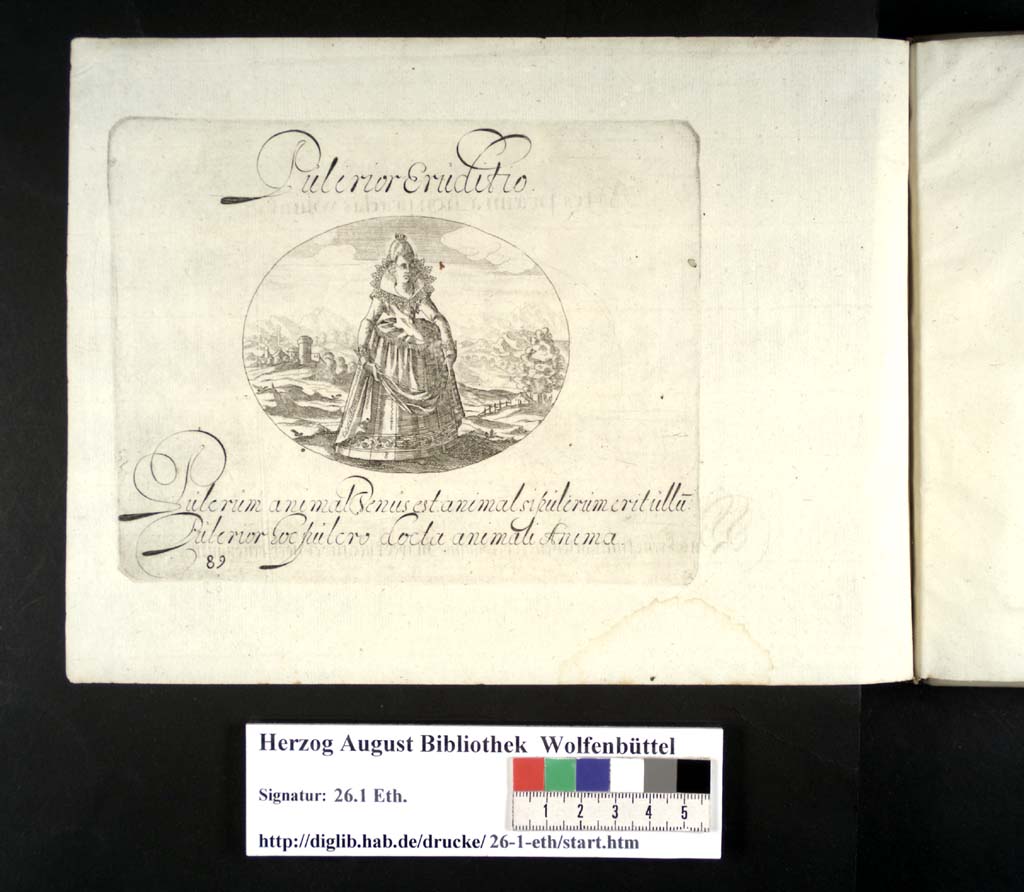 Pulcrior Erúditio.
Pulcrúm animal Venús est animal si púlcrúm erit úllū.
Púlcrior hoc púlcro docta animali Anima.
89
Herzog August Bibliothek Wolfenbüttel
Signatur: 26.1 Eth.
1 2 3 4 5
http://diglib.hab.de/drucke/ 26-1-eth/start.htm